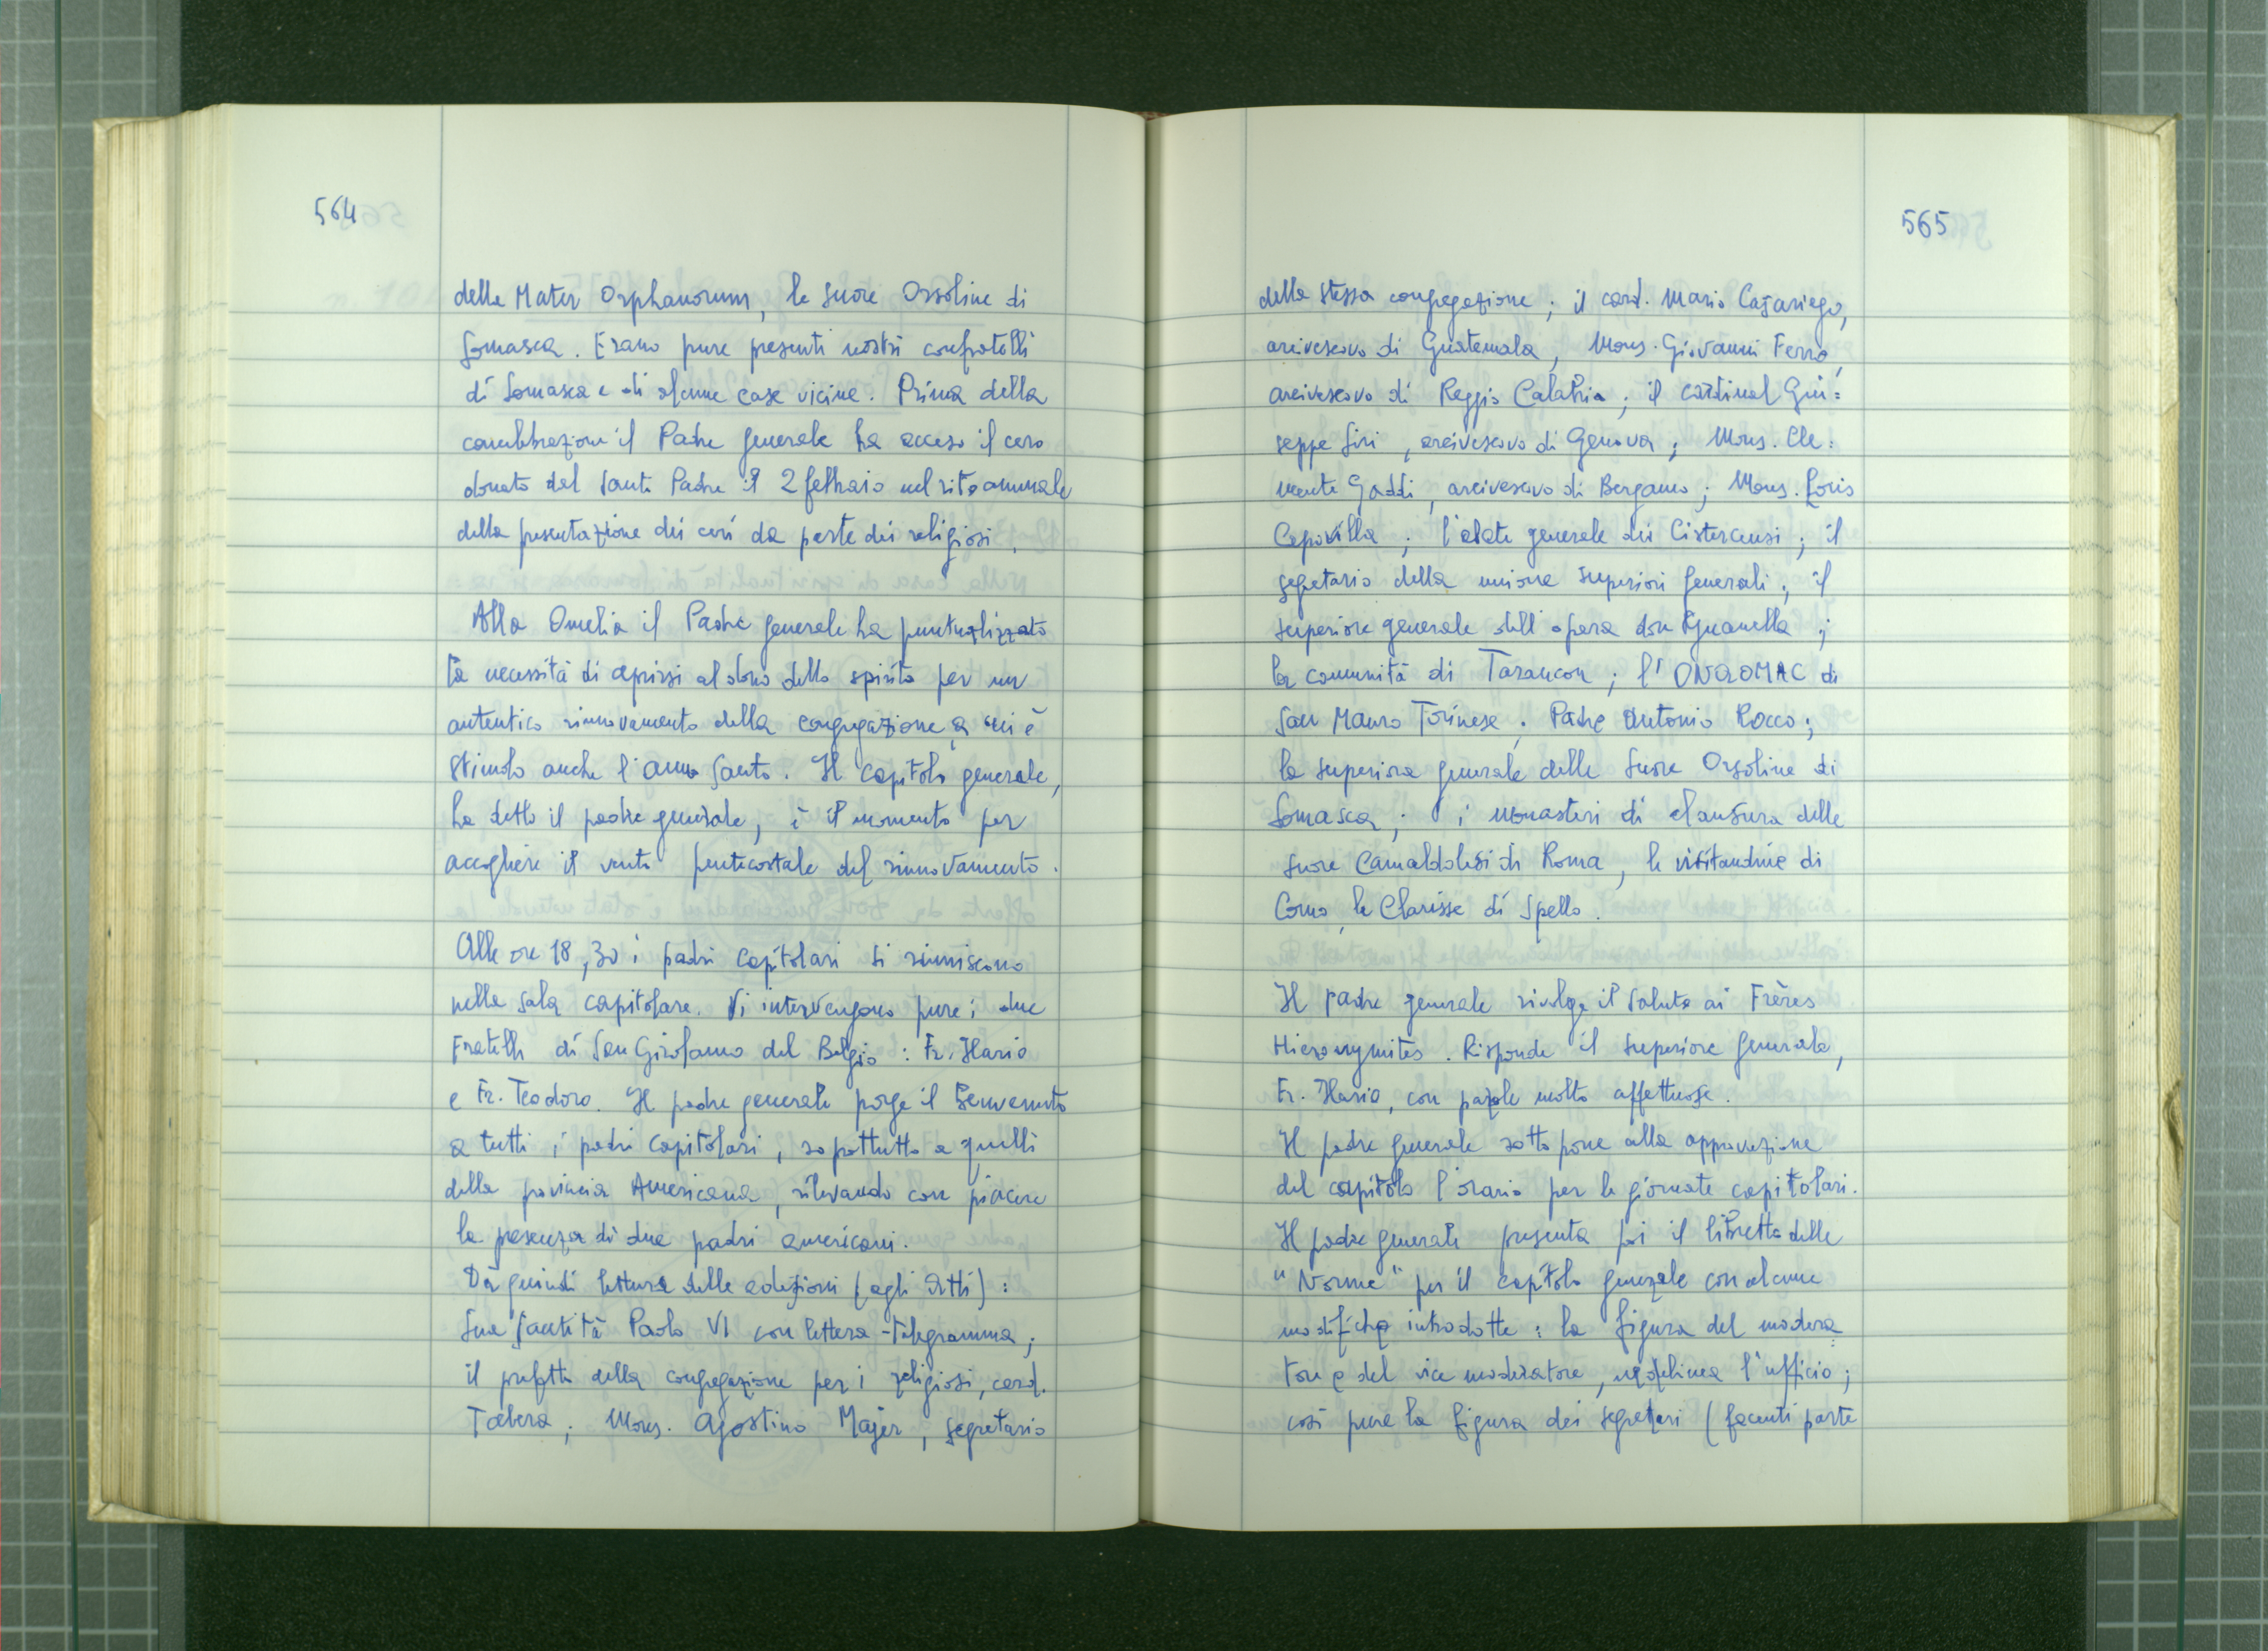 564
della Mater Orphanorum, le suore Orsoline di
Somasca. Erano pure presenti nostri confratelli
di Somasca e di alcune case vicine. Prima della
concelebrazione il Padre generale ha acceso il cero
donato dal Santo Padre il 2 febbraio nel rito annuale
della presentazione dei ceri da parte dei religiosi.
Alla Omelia il Padre generale ha puntualizzato
la necessità di aprirsi al dono dello spirito per un
autentico rinnovamento della congregazione a cui è
stimolo anche l'anno santo. Il capitolo generale,
ha detto il padre generale, è il momento per
accogliere il vento pentecostale del rinnovamento.
Alle ore 18,30 i padri capitolari si riuniscono
nella sala capitolare. Vi intervengono pure i due
Fratelli di San Girolamo del Belgio: Fr. Ilario
e Fr. Teodoro. Il padre generale porge il benvenuto
a tutti i padri capitolari, soprattutto a quelli
della provincia Americana, rilevando con piacere
la presenza di due padri americani.
Dà quindi lettura delle adesioni (agli Atti):
Sua Santità Paolo VI con lettera-telegramma;
il prefetto della congregazione per i religiosi, card.
Tabera; Mons. Agostino Majer, segretario
565
della stessa congregazione; il card. Mario Casariego,
arcivescovo di Guatemala, Mons. Giovanni Ferro,
arcivescovo di Reggio Calabria; il cardinal Giu=
seppe Siri, arcivescovo di Genova; Mons. Cle=
mente Gaddi, arcivescovo di Bergamo; Mons. Loris
Capovilla; l'abate generale dei Cistercensi; il
segretario della unione superiori generali; il
superiore generale dell'opera don Guanella;
la comunità di Tarancon; l'ONAOMAC di
San Mauro Torinese; Padre Antonio Rocco;
la superiora generale delle suore Orsoline di
Somasca; i monasteri di clausura delle
suore Camaldolesi di Roma, le visitandine di
Como, le Clarisse di Spello.
Il padre generale rivolge il saluto ai Frères
Hieronymites. Risponde il superiore generale,
Fr. Ilario, con parole molto affettuose.
Il padre generale sottopone alla approvazione
del capitolo l'orario per le giornate capitolari.
Il padre generale presenta poi il libretto delle
"Norme" per il capitolo generale con alcune
modifiche introdotte: la figura del modera=
tore e del vice moderatore, ne delinea l'ufficio;
così pure la figura dei segretari (facenti parte